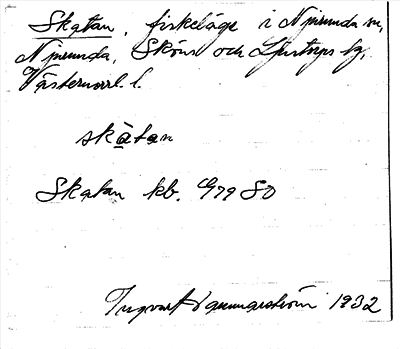 Skatan, fiskeläge i Njurunda sn,
Njurunda, Sköns och Ljustorps tg,
Västernorrl. l.
skàtan
Skatan kb. G79 SO
Ingvar 1932